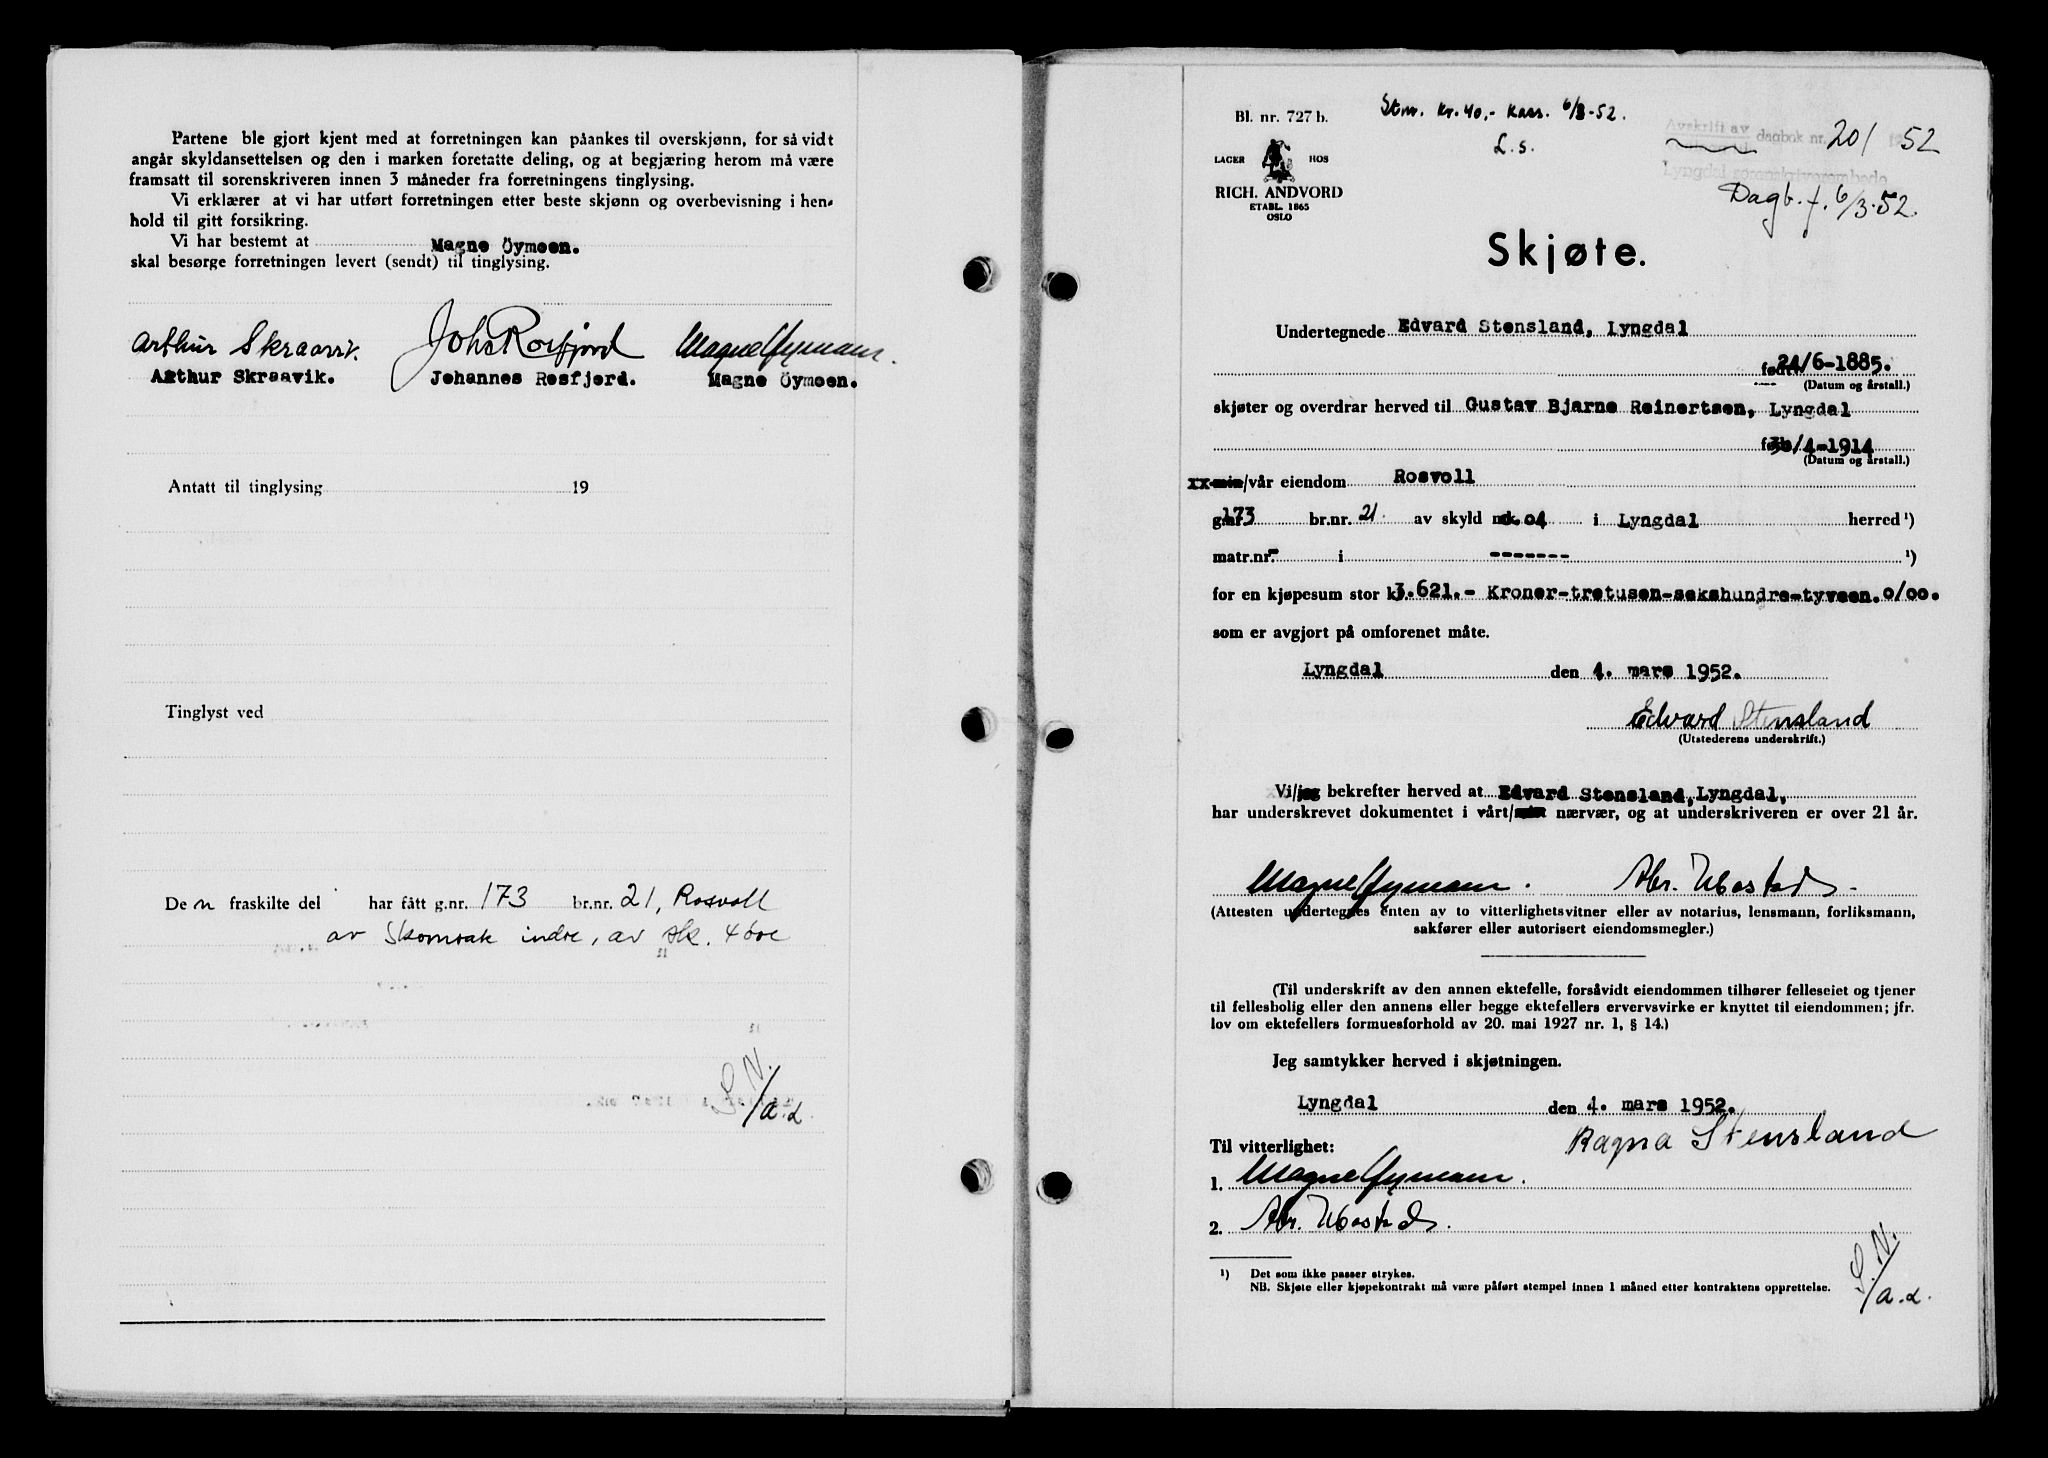 Partene ble gjort kjent med at forretningen kan påankes til overskjønn, for så vidt
angår skyldansettelsen og den i marken foretatte deling, og at begjæring herom må være
framsatt til sorenskriveren innen 3 måneder fra forretningens tinglysing.
Vi erklærer at vi har utført forretningen etter beste skjønn og overbevisning i hen-
hold til gitt forsikring.
Vi har bestemt at Magne Öymoen.
skal besørge forretningen levert (sendt) til tinglysing.
Arthur Skraavik. Joh Rosfjord
Arthur Skraavik. Johannes Rosfjord. Magne Öymoen.
Antatt til tinglysing 19
Tinglyst ved
Den fraskilte del har fått g.nr. 173 br.nr. 21, Rosvoll
av Skomrak indre, av sk. 4 øre
S.N.
/a.d.
Bl. nr. 727 b.
Stm. kr. 40,- kass. 6/3-52.
L.s.
LAGER HOS
RICH. ANDVORD
ETABL. 1865
OSLO
Avskrift av dagbok nr. 201 1952
Lyngdal sorenskriverembede
Dagb. f. 6/3-52.
Skjøte.
Undertegnede Edvard Stensland, Lyngdal
født 24/6-1885.
(Datum og årstall.)
skjøter og overdrar herved til Gustav Bjarne Reinertsen, Lyngdal
30/4-1914
(Datum og årstall.)
xx min/vår eiendom Rosvoll
g.nr. 173 br.nr. 21 av skyld mk. 0.04 i Lyngdal herred ¹)
matr.nr. - i ------- ¹)
for en kjøpesum stor kr. 3.621.- Kroner-tretusen-sekshundre-tyveen.0/00.
som er avgjort på omforenet måte.
Lyngdal den 4. mars 1952.
Edvard Stensland
(Utstederens underskrift.)
Vi/jeg bekrefter herved at Edvard Stensland, Lyngdal,
har underskrevet dokumentet i vårt/mitt nærvær, og at underskriveren er over 21 år.
(Attesten undertegnes enten av to vitterlighetsvitner eller av notarius, lensmann, forliksmann,
sakfører eller autorisert eiendomsmegler.)
(Til underskrift av den annen ektefelle, forsåvidt eiendommen tilhører felleseiet og tjener
til fellesbolig eller den annens eller begge ektefellers ervervsvirke er knyttet til eiendommen; jfr.
lov om ektefellers formuesforhold av 20. mai 1927 nr. 1, § 14.)
Jeg samtykker herved i skjøtningen.
Lyngdal den 4. mars 1952.
Ragna Stensland
Til vitterlighet:
1.
2.
S.N.
/a.d.
¹) Det som ikke passer strykes.
NB. Skjøte eller kjøpekontrakt må være påført stempel innen 1 måned etter kontraktens opprettelse.